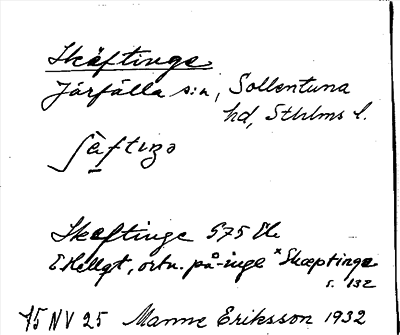 Skäftinge
Järfälla s:n, Sollentuna
hd, Sthlms l.
ʃäftɪŋə
Skæftinge 575
E Hellqt, ortn. på -inge *Skæptinge
s. 132
Manne Eriksson 1932